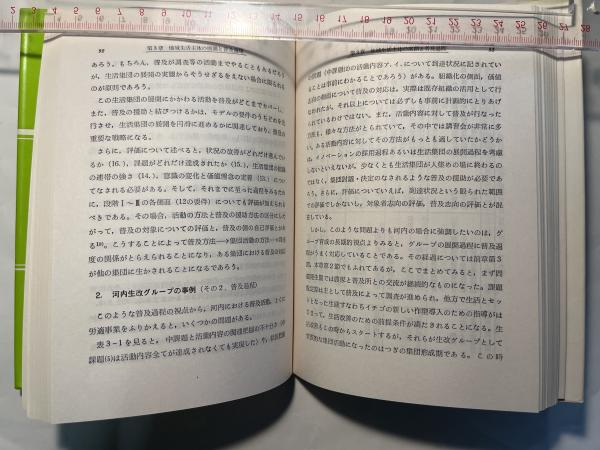 92
第3章 地域生活主体の展開と普及過程
あろう。もちろん、普及が調査等の活動までやることもあるだろう
が、生活集団の展開の実態からそうせざるをえない場合に限られる
のが原則であろう。
この生活集団の展開にかかわる活動を普及がどこまでカバーし、
また、普及の援助と結びつけるかは、モデルの要件のうちどれを先
行させ、生活集団の展開を円滑に進めるかに関連しており、普及の
重要な戦略になる。
さらに、評価について述べると、状況の改善がどれだけ進んでい
るか(16.)、課題がどれだけ達成されたか(15.)、生活集団の組織
の連帯の強さ(14.)、意識の変化と価値理念の定着(13.)につい
てなされる必要がある。そして、それまでに至った過程をみるため
に、段階Ⅰ〜Ⅲの各側面(12の要件)についても評価が加えられる
べきである。その場合、活動の方法と普及の援助方法の区分にした
がって、普及の対象についての評価と、普及の側の自己評価とがあ
る。こうすることによって普及方法→集団活動の方法→の関
度の関係がとらえられることになり、ある集団における普及の援助
が他の集団に生かされることになるであろう。
2. 河内生改グループの事例(その2、普及過程)
このような普及過程の視点から、河内における普及活動、とくに
労適事業をふりかえると、いくつかの問題がある。
表3-1を見ると、中課題と活動内容の関連把握の不十分さ(中
課題(5)は活動内容全てが達成されなくても実現した)や、
93
の読取(中課題(1)の活動内容ア、イ、について到達状況に記されてい
ることは事前にわかることであろう)がある。組織化の側面、価値
志向の側面について普及の対応は、実際は既存組織の活用として行
なわれたが、それ以上については必ずしも事前に計画的にとりあげ
られているわけではない。また、活動内容に対して普及が行なった
方法も、様々な方法がとられていて、その中では講習会が非常に多
い。ある活動内容に対してその方法がもっとも適していたかどうか
は、イノベーションの採用過程あるいは生活集団の展開過程を考慮
しないといえないが、少なくとも生活集団が人集めの場に終わるの
ではなく、集団討議・決定のなされるような普及の援助が必要であ
ろう。さらに、評価についていえば、到達状況という限られた範囲
での評価でしかないし、対象者志向の評価、普及志向の評価とが混
在している。
しかし、このような問題よりも河内の場合に強調したいのは、グル
ープ育成の長期的視点よりみると、グループの展開過程に普及過
程がうまく対応していることである。その経過については前章第3
節、本章第2節でもふれてあるが、ここでまとめてみると、まず問
題発生期では農家と普及所との交流が継続的なものになった。課題
設定期は主として普及によって調査が進められ、他方で生活とセッ
トとなった生産すなわちイチゴの新しい作型導入のための指導がは
いって、生活改善のための前提条件が満たされることになる。生
活改善もこの時からスタートするが、それらが生改グループとして
実質的な集団活動になったのはつぎの集団形成期である。この時